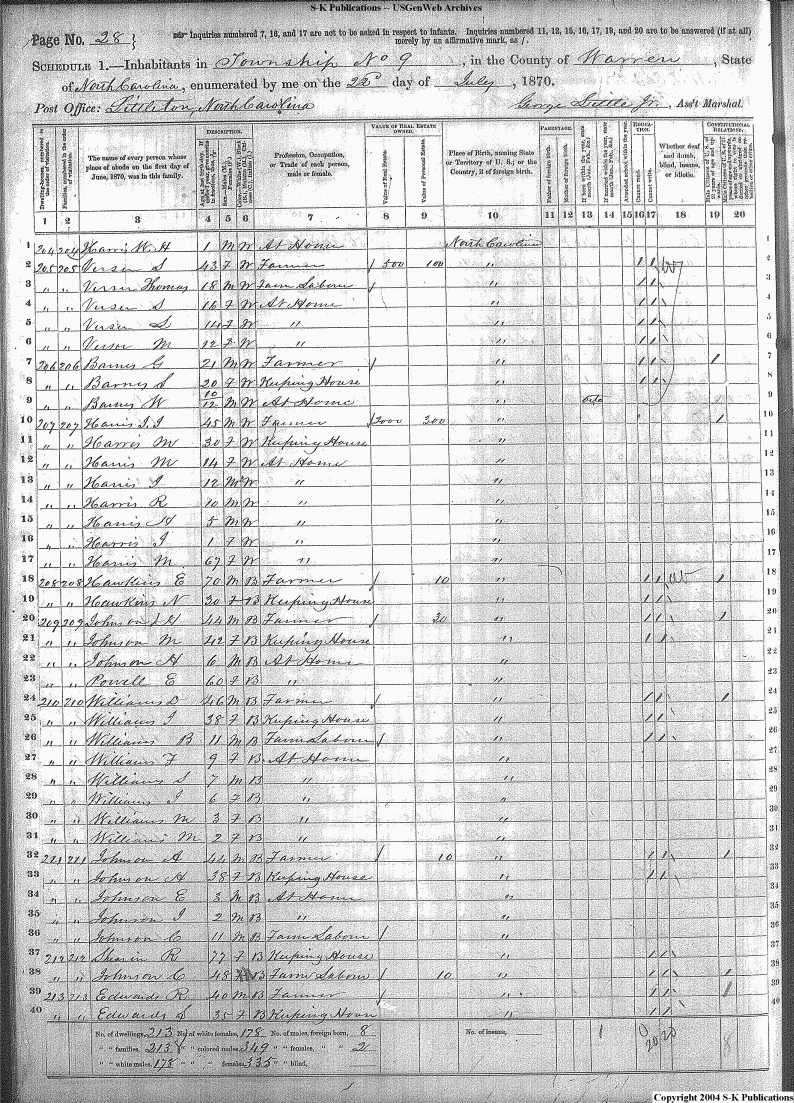 S-K Publications -- USGenWeb Archives
Page No. 28
Inquiries numbered 7, 16, and 17 are not to be asked in respect to infants. Inquiries numbered 11, 12, 15, 16, 17, 19, and 20 are to be answered (if at all)
merely by an affirmative mark, as /.
SCHEDULE 1.—Inhabitants in Township No 9, in the County of Warren, State
of North Carolina, enumerated by me on the 22d day of July, 1870.
Post Office: Littleton, North Carolina George Little Jr, Ass't Marshal.
DESCRIPTION. VALUE OF REAL ESTATE OWNED. PARENTAGE. EDUCATION. CONSTITUTIONAL RELATIONS.
Dwelling-houses, numbered in the order of visitation.
Families, numbered in the order of visitation.
The name of every person whose place of abode on the first day of June, 1870, was in this family.
Profession, Occupation, or Trade of each person, male or female.
Value of Real Estate.
Value of Personal Estate.
Place of Birth, naming State or Territory of U. S.; or the Country, if of foreign birth.
Father of foreign birth.
Mother of foreign birth.
Attended school within the year.
Cannot read.
Cannot write.
Whether deaf and dumb, blind, insane, or idiotic.
1 2 3 4 5 6 7 8 9 10 11 12 13 14 15 16 17 18 19 20
1 204 204 Harris W. H 1 M W At Home North Carolina 1
2 205 205 S 43 F W Farmer / 500 100 " / / 2
3 " " Thomas 18 M W Farm Labour / " / / 3
4 " " S 16 F W At Home " / / 4
5 " " S 14 F W " " / / 5
6 " " M 12 F W " " / / 6
7 206 206 Barnes G 21 M W Farmer / " / / / 7
8 " " Barnes S 20 F W Keeping House " / / 8
9 " " Barnes W 10/12 M W At Home " 9
10 207 207 Harris 45 M W Farmer / 2000 300 " / 10
11 " " Harris M 30 F W Keeping House " 11
12 " " Harris M 14 F W At Home " 12
13 " " Harris J 12 M W " " 13
14 " " Harris R 10 M W " " 14
15 " " Harris H 5 M W " " 15
16 " " Harris J 1 F W " " 16
17 " " Harris M 67 F W " " 17
18 208 208 Hawkins E 70 M B Farmer / 10 " / / / 18
19 " " Hawkins N 30 F B Keeping House " / / 19
20 209 209 Johnson 44 M B Farmer / 30 " / / / 20
21 " " Johnson M 42 F B Keeping House " / / 21
22 " " Johnson H 6 M B At Home " 22
23 " " Powell E 60 F B " " 23
24 210 210 Williams D 46 M B Farmer / " / / / 24
25 " " Williams J 38 F B Keeping House " / / 25
26 " " Williams B 11 M B Farm Labour / " / / 26
27 " " Williams F 9 F B At Home " 27
28 " " Williams S 7 M B " " 28
29 " " Williams J 6 F B " " 29
30 " " Williams M 3 F B " " 30
31 " " Williams M 2 F B " " 31
32 211 211 Johnson A 44 M B Farmer / 10 " / / / 32
33 " " Johnson H 38 F B Keeping House " / / 33
34 " " Johnson E 3 M B At Home " 34
35 " " Johnson J 2 M B " " 35
36 " " Johnson C 11 M B Farm Labour / " 36
37 212 212 Shearin R 77 F B Keeping House " / / 37
38 " " Johnson C 48 B Farm Labour / 10 " / / / 38
39 213 213 Edwards R 40 M B Farmer / " / / / 39
40 " " Edwards S 35 F B Keeping House " / / 40
No. of dwellings, 213 No. of white females, 178 No. of males, foreign born, 8 No. of insane, 1 0 20 20 8
" " families, 213 " " colored males, 349 " " females, " " 2
" " white males, 178 " " " females, 335 " " blind,
Copyright 2004 S-K Publications